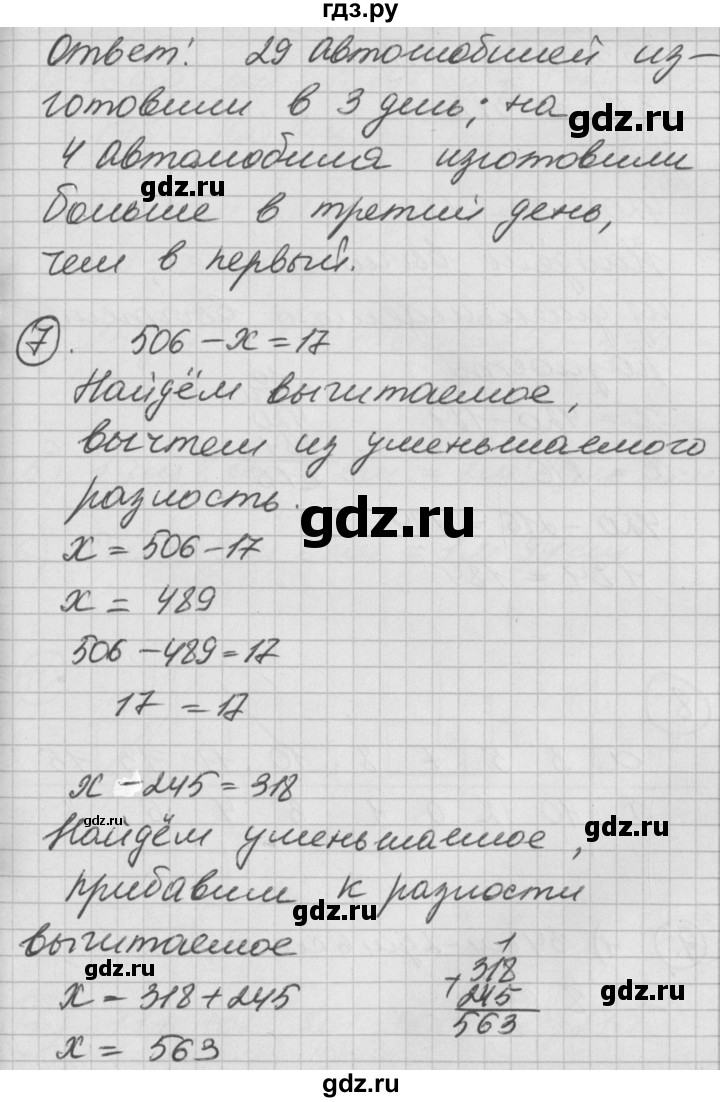 гдз.ру
Ответ: 29 автомобилей из-
готовили в 3 день; на
gdz.ru
4 автомобиля изготовили
gdz.ru
больше в третий день,
чем в первый.
7. 506 - х = 17
gdz.ru
Найдём вычитаемое,
вычтем из уменьшаемого
разность.
gdz.ru
х = 506 - 17
х = 489
gdz.ru
506 - 489 = 17
17 = 17
gdz.ru
х - 245 = 318
gdz.ru
Найдём уменьшаемое,
gdz.ru
прибавим к разности
gdz.ru
вычитаемое
gdz.ru
х = 318 + 245
х = 563
1
+ 318
245
563
gdz.ru
gdz.ru
gdz.ru